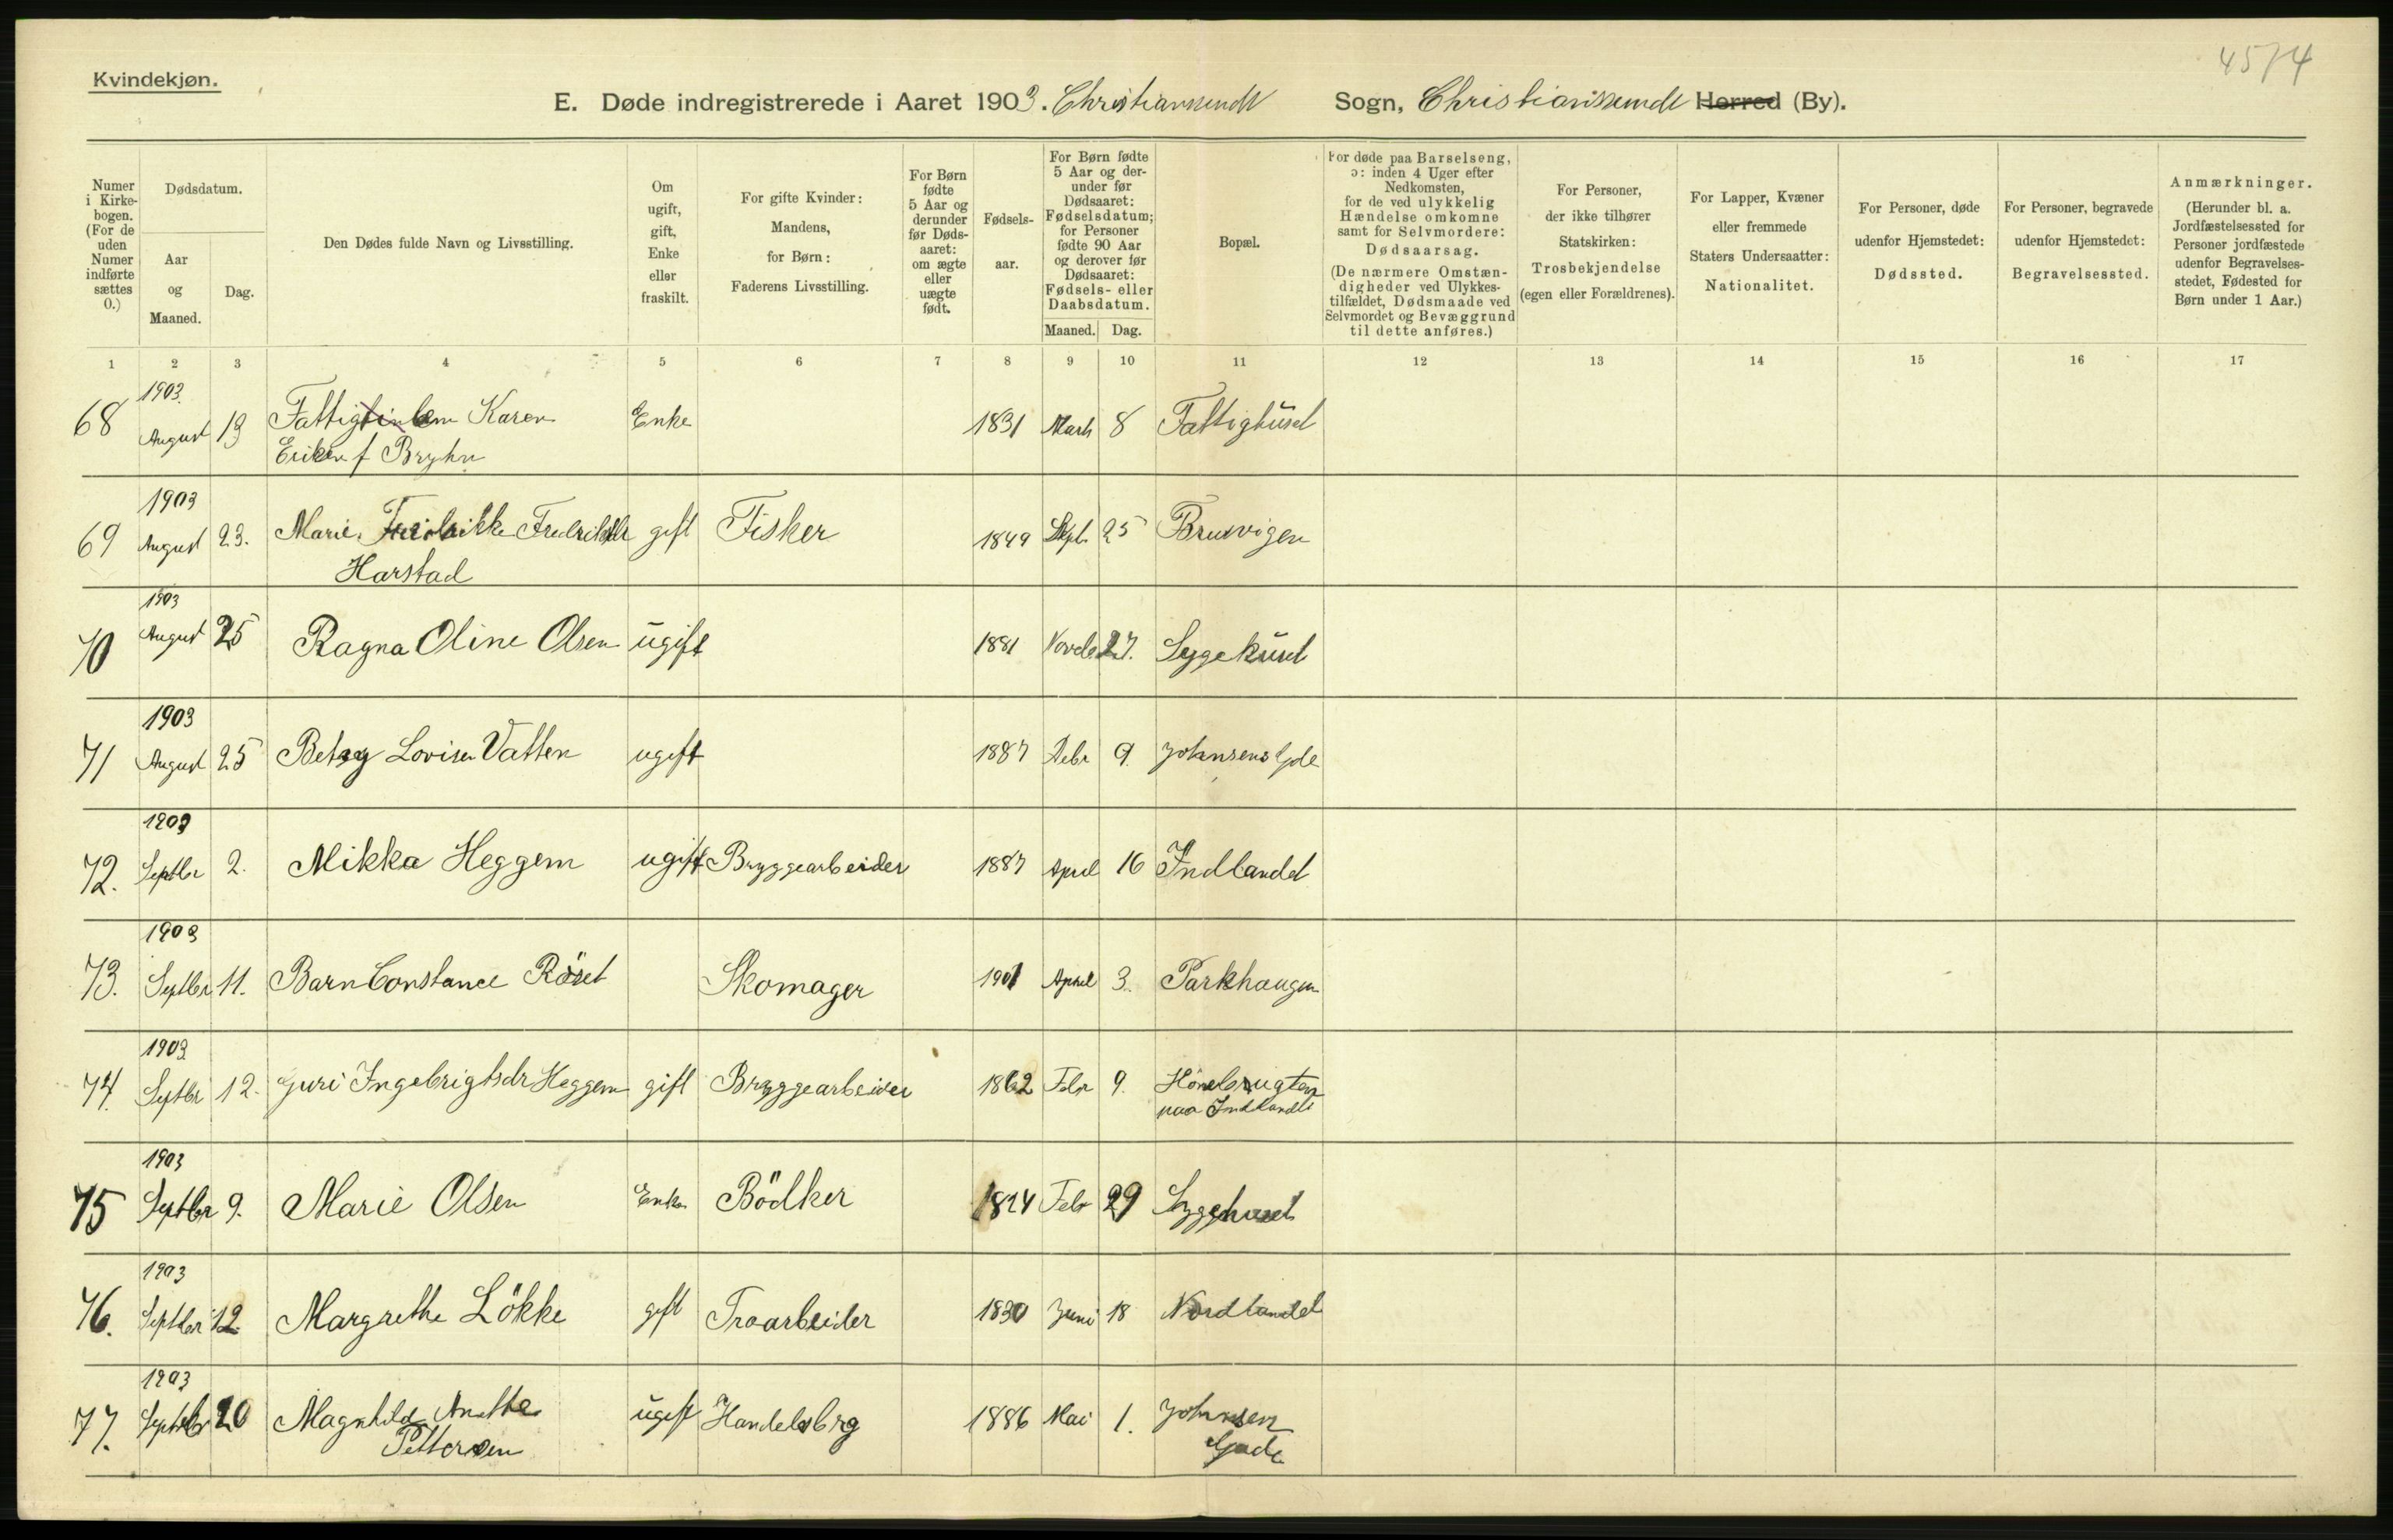 Kvindekjøn.
4574
E. Døde indregistrerede i Aaret 1903. Christianssundt Sogn, Christianssundt Herred (By).
Numer i Kirkebogen. (For de uden Numer indførte sættes 0.)
Dødsdatum.
Aar og Maaned.
Dag.
Den Dødes fulde Navn og Livsstilling.
Om ugift, gift, Enke eller fraskilt.
For gifte Kvinder: Mandens, for Børn: Faderens Livsstilling.
For Børn fødte 5 Aar og derunder før Dødsaaret: om ægte eller uægte født.
Fødselsaar.
For Børn fødte 5 Aar og derunder før Dødsaaret: Fødselsdatum; for Personer fødte 90 Aar og derover før Dødsaaret: Fødsels- eller Daabsdatum.
Maaned. Dag.
Bopæl.
For døde paa Barselseng, ɔ: inden 4 Uger efter Nedkomsten, for de ved ulykkelig Hændelse omkomne samt for Selvmordere: Dødsaarsag. (De nærmere Omstændigheder ved Ulykkestilfældet, Dødsmaade ved Selvmordet og Bevæggrund til dette anføres.)
For Personer, der ikke tilhører Statskirken: Trosbekjendelse (egen eller Forældrenes).
For Lapper, Kvæner eller fremmede Staters Undersaatter: Nationalitet.
For Personer, døde udenfor Hjemstedet: Dødssted.
For Personer, begravede udenfor Hjemstedet: Begravelsessted.
Anmærkninger. (Herunder bl. a. Jordfæstelsessted for Personer jordfæstede udenfor Begravelsesstedet, Fødested for Børn under 1 Aar.)
1 2 3 4 5 6 7 8 9 10 11 12 13 14 15 16 17
1903.
68 August 13 Fattiglem Karen Enke 1831 Marts 8 Fattighuset
f Bryhn
1903
69 August 23. Marie Fredrikke gift Fisker 1849 Sept. 25
Harstad
1903
70 August 25 Ragna Oline Olsen ugift 1881 27. Sygehuset
1903
71 August 25 Betsy Lovise Vatten ugift 1887 9. Johnsens Gde
1903
72. Septbr 2. Mikka Heggem ugift Bryggearbeider 1887 April 16 Indlandet
1903
73. Septbr 11. Barn Constance Röset Skomager 1901 April 3. Parkhaugen
1903.
74. Septbr 12. Guri Ingebrigtsdr Heggem gift Bryggearbeider 1862 Febr 9.
paa Indlandet
1903
75 Septbr 9. Marie Olsen Enke Bödker 1824 Febr 29 Sygehuset
1903
76. Septbr 12 Margrethe Lökke gift Traarbeider 1830 Juni 18 Nordlandet
1903
77. Septbr 20 Magnhild Anette ugift Handelsbrg 1886 Mai 1. Johnsen
Pettersen Gade